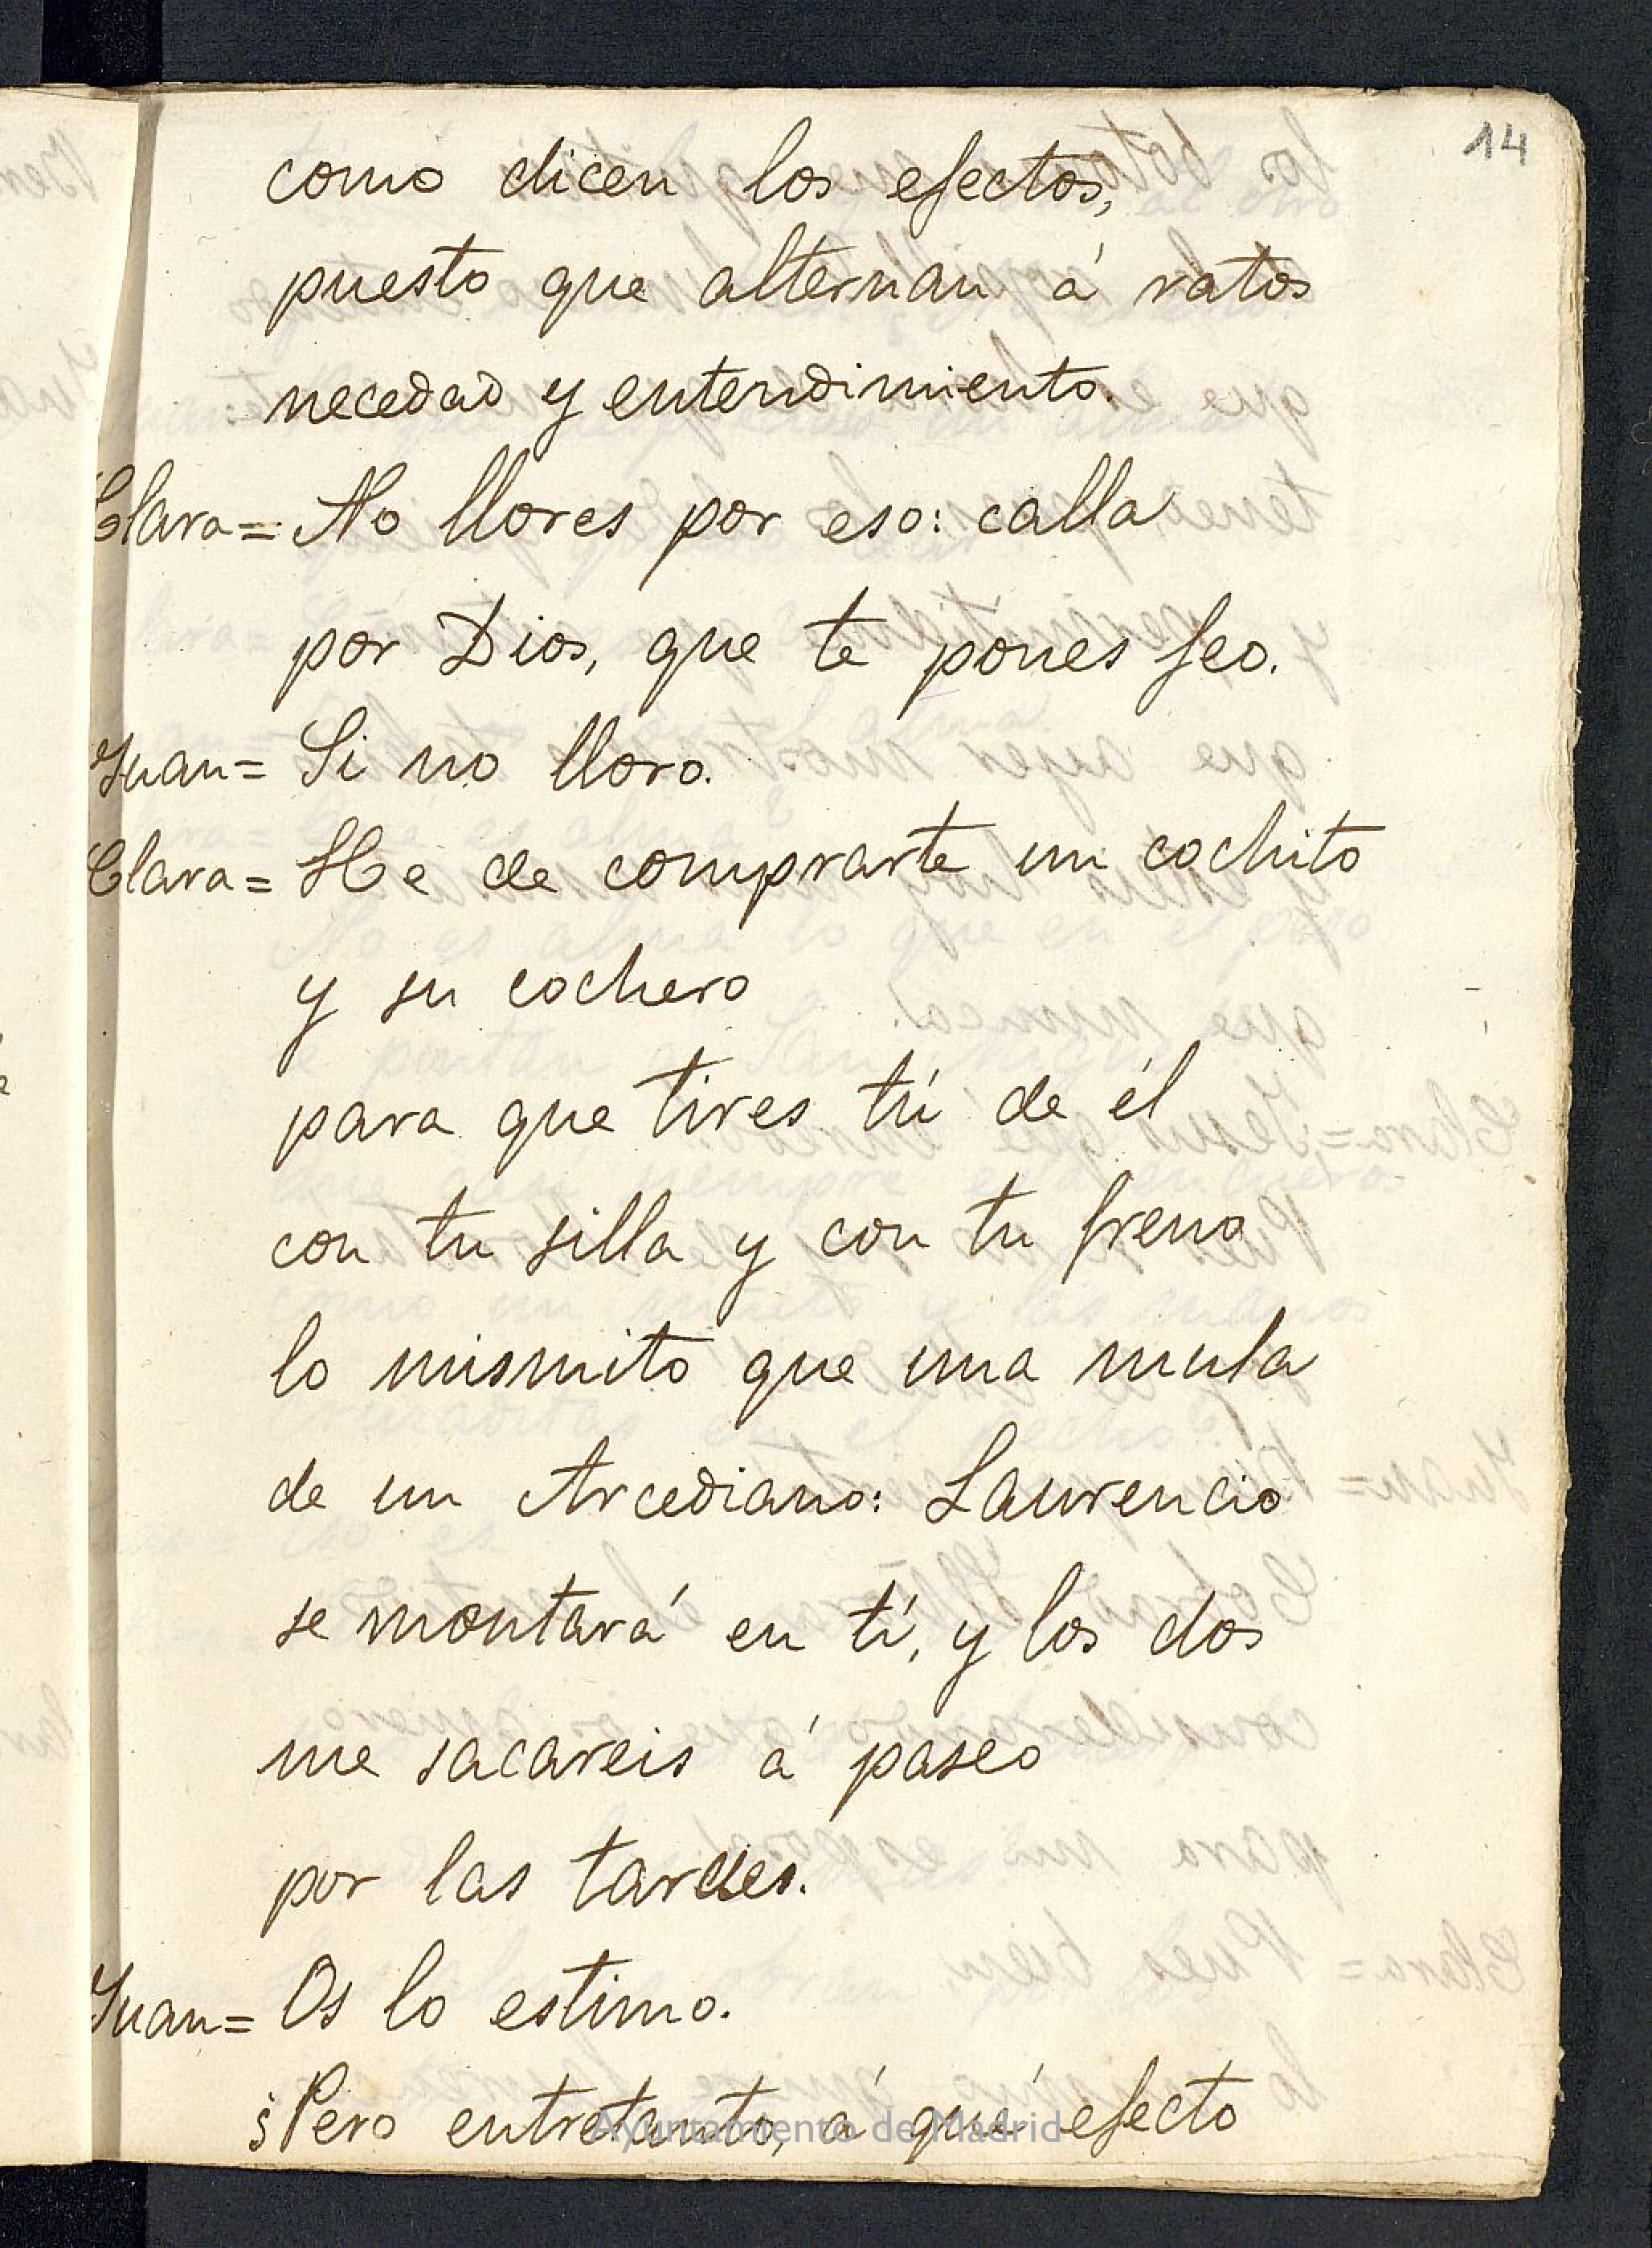 14
como dicen los efectos,
puesto que alternan á ratos
necedad y entendimiento.
Clara= No llores por eso: calla
por Dios, que te pones feo.
Juan= Si no lloro.
Clara= He de comprarte un cochito
y su cochero
para que tires tú de él
con tu silla y con tu freno
lo mismito que una mula
de un Arcediano: Laurencio
se montará en tí, y los dos
me sacareis á paseo
por las tardes.
Juan= Os lo estimo.
¿Pero entretanto, á qué efecto
Ayuntamiento de Madrid